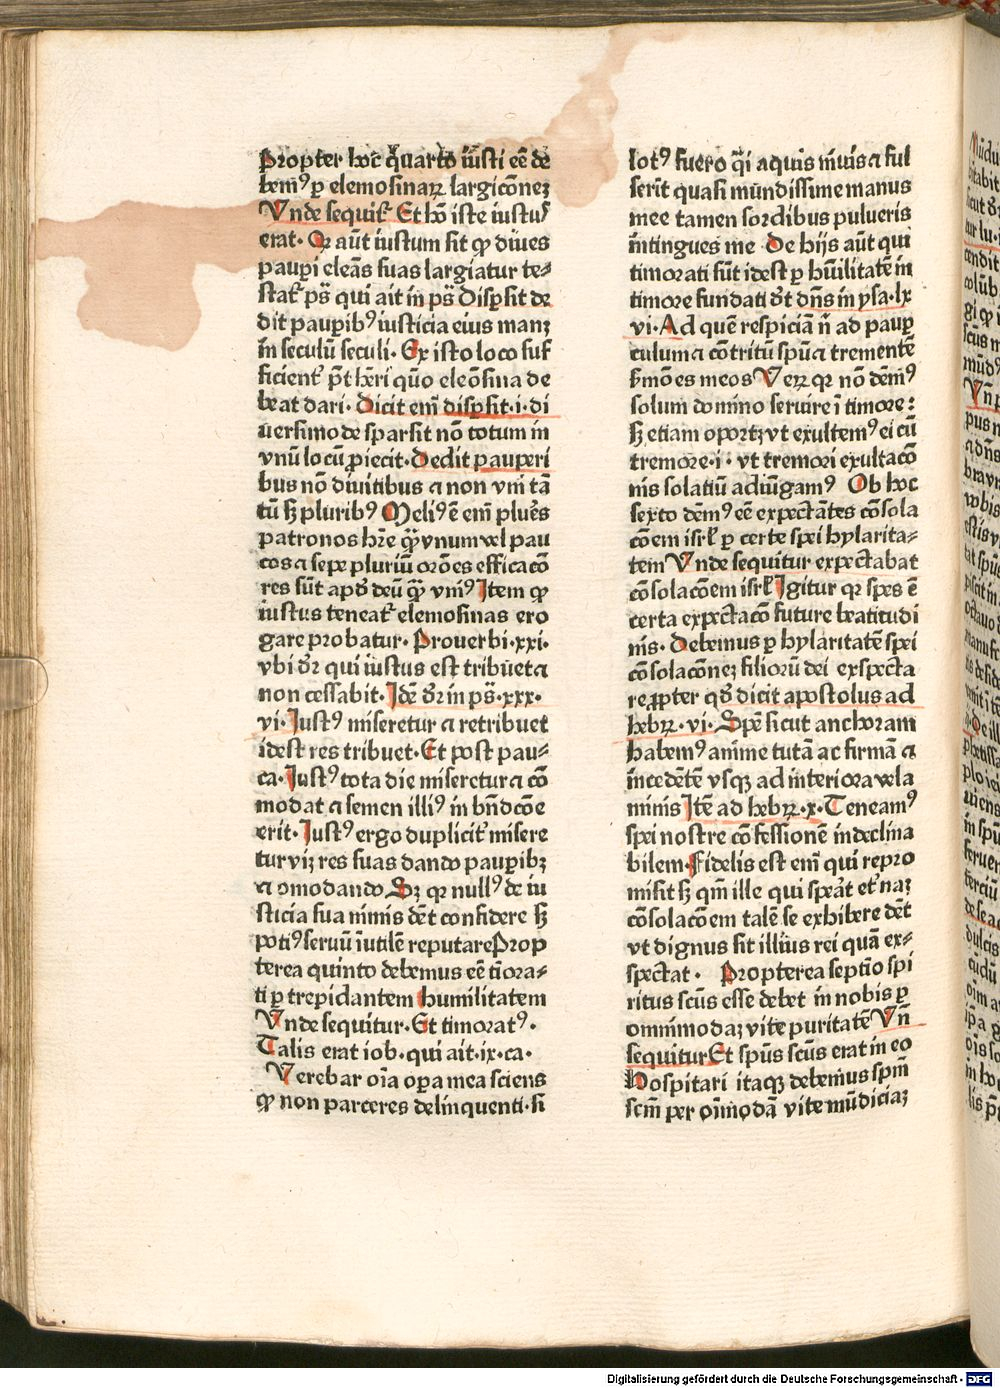 Propter hoc q̈uarto iusti eē de
bemꝰ ꝑ elemosinaꝝ largicōneꝫ
Vnde sequiť Et hō iste iustus
erat· Qꝛ aūt iustum sit ꝙ diues
pauꝑi eleās suas largiatur te⸗
stať pš qui ait in pš Disꝑsit de
dit pauꝑibꝰ iusticia eius manꝫ
in seculū seculi· Ex isto loco suf
ficient̕ pt̄ hēri quō eleōsina de
beat dari· Dicit em̄ disꝑsit·i·di
uersimode sparsit nō totum in
vnū locū ꝓiecit· Dedit pauperi
bus nō diuitibus ⁊ non vni tā
tū sꝫ pluribꝰ Meliꝰ ē em̄ plues
patronos hr̄e qꝫ̄ vnum vel pau
cos ⁊ sepe pluriū oꝛōes efficacō
res sūt apd̕ deū qꝫ̄ vniꝰ Item ꝙ
iustus teneať elemosinas ero
gare probatur· Prouerbi·xxi·
vbi dꝛ̄ qui iustus est tribuet ⁊
non cessabit· Idē dꝛ̄ in pš·xxx·
vi· Justꝰ miseretur ⁊ retribuet
idest res tribuet· Et post pau⸗
ca· Justꝰ tota die miseretur ⁊ cō
modat ⁊ semen illiꝰ in bn̄dcōe
erit· Justꝰ ergo duplicit̕ misere
tur viꝫ res suas dando pauꝑibꝫ
⁊ omodando Sꝫ qꝛ nullꝰ de iu
sticia sua nimis dēt confidere sꝫ
potiꝰ seruū iutilē reputare Prop
terea quinto debemus eē tiōra⸗
ti ꝑ trepidantem humilitatem
Vnde sequitur· Et timoratꝰ·
Talis erat iob· qui ait·ix·ca·
Verebar oīa oꝑa mea sciens
ꝙ non parceres delinquenti· si
lotꝰ fuero q̄i aquis niuis ⁊ ful
serint quasi mūndissime manus
mee tamen sordibus pulueris
intingues me De hijs aūt qui
timorati sūt idest ꝑ hūilitatē in
timore fundati dꝛ̄t dn̄s in ysa·lx
vi· Ad quē respiciā n̄ ad pauꝑ
culum ⁊ cōtritū spū ⁊ trementē
ẜmōes meos Veꝝ qꝛ nō dēmꝰ
solum domino seruire ī timore:
sꝫ etiam oportꝫ vt exultemꝰ ei cū
tremore·i· vt tremori exultacō
nis solatiū adiūgamꝰ Ob hoc
sexto dēmꝰ eē expectātes cōsola
cōem isrł ꝑ certe spei hylarita⸗
tem Vnde sequitur expectabat
cōsolacōem isrł Igitur qꝛ spes ē
certa expectacō future beatitudi
nis· Debemus ꝑ hylaritatē spei
cōsolacōneꝫ filiorū dei exspecta
re ꝓpter qd̕ dicit apostolus ad
hebꝝ·vi· Spē sicut anchoram
habemꝰ anime tutā ac firmā ⁊
incedētē vsqꝫ ad interiora vela
minis Itē ad hebꝝ·x· Teneamꝰ
spei nostre cōfessionē indeclina
bilem· Fidelis est em̄ qui repro
misit sꝫ qm̄ ille qui sperat et̕naꝫ
cōsolacōem talē se exhibere dēt
vt dignus sit illius rei quā ex⸗
spectat· Propterea septīo spi
ritus scūs esse debet in nobis ꝑ
omnimodaꝫ vite puritatē Vn̄
sequitur Et spūs scūs erat in eo
Hospitari itaqꝫ debemus spm̄
scm̄ per oīmodā vite mūdiciaꝫ
Digitalisierung gefördert durch die Deutsche Forschungsgemeinschaft - DFG